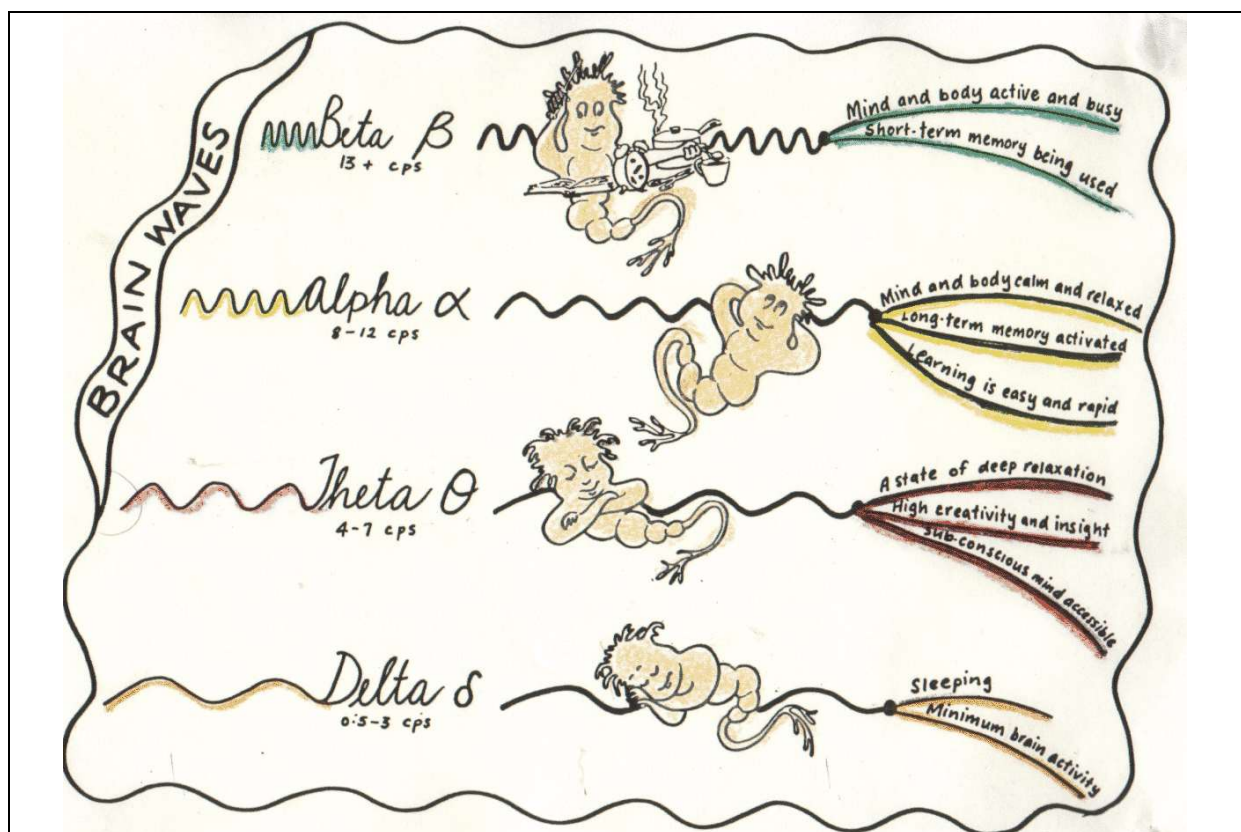 BRAIN WAVES
Beta β
13 + cps
Mind and body active and busy
Short-term memory being used
Alpha α
8-12 cps
Mind and body calm and relaxed
Long-term memory activated
Learning is easy and rapid
Theta θ
4-7 cps
A state of deep relaxation
High creativity and insight
Sub-conscious mind accessible
Delta δ
0.5-3 cps
Sleeping
Minimum brain activity